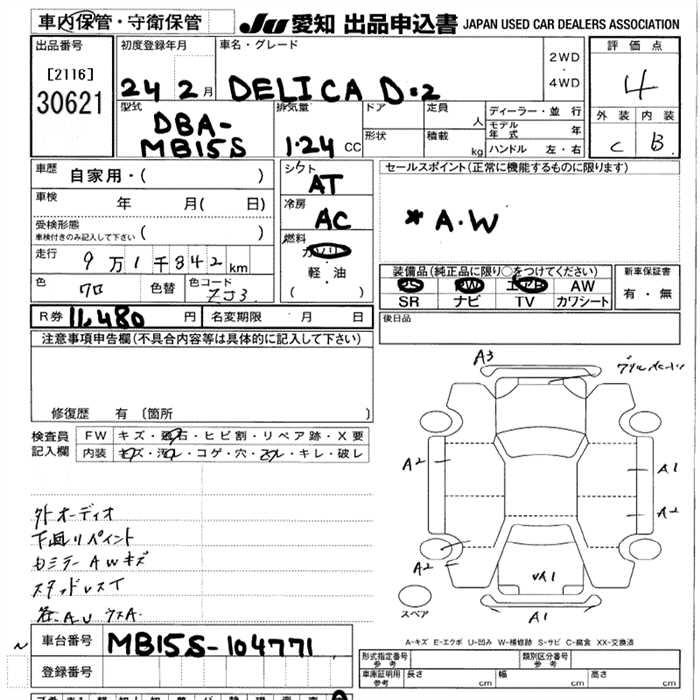 車内保管・守衛保管
JU 愛知 出品申込書 JAPAN USED CAR DEALERS ASSOCIATION
出品番号 初度登録年月 車名・グレード 2WD・4WD 評価点
[2116]
30621 24 2月 DELICA D:2 4
型式 排気量 ドア 定員 人 ディーラー・並行 外装 内装
DBA- モデル年式 年
MB15S 1.24 CC 形状 積載 kg ハンドル 左・右 C B
車歴 自家用・( ) シフト AT セールスポイント(正常に機能するものに限ります)
車検 年 月( 日) 冷房 AC * A・W
受検形態
車検付きのみ記入して下さい ( ) 燃料 ガソリン
走行 9万1千842km 軽・油 装備品(純正品に限り○をつけてください) 新車保証書
色 クロ 色替 色コード ZJ3 ( ) PS PW エアB AW 有・無
SR ナビ TV カワシート
R券 11,480円 名変期限 月 日 後日品
注意事項申告欄(不具合内容等は具体的に記入して下さい)
修復歴 有 [箇所 ]
検査員 FW キズ・飛石・ヒビ割・リペア跡・X要
記入欄 内装 キズ・汚れ・コゲ・穴・スレ・キレ・破レ
A3
A2
A1
A2
A2
A1
A1
スペア
外オーディオ
下回リペイント
AWキズ
スタッドレスT
A-キズ E-エクボ U-凹み W-補修跡 S-サビ C-腐食 XX-交換済
車台番号 MB15S-104771
登録番号
形式指定番号 参考 類別区分番号 参考
車庫証明用 参考 長さ cm 幅 cm 高さ cm